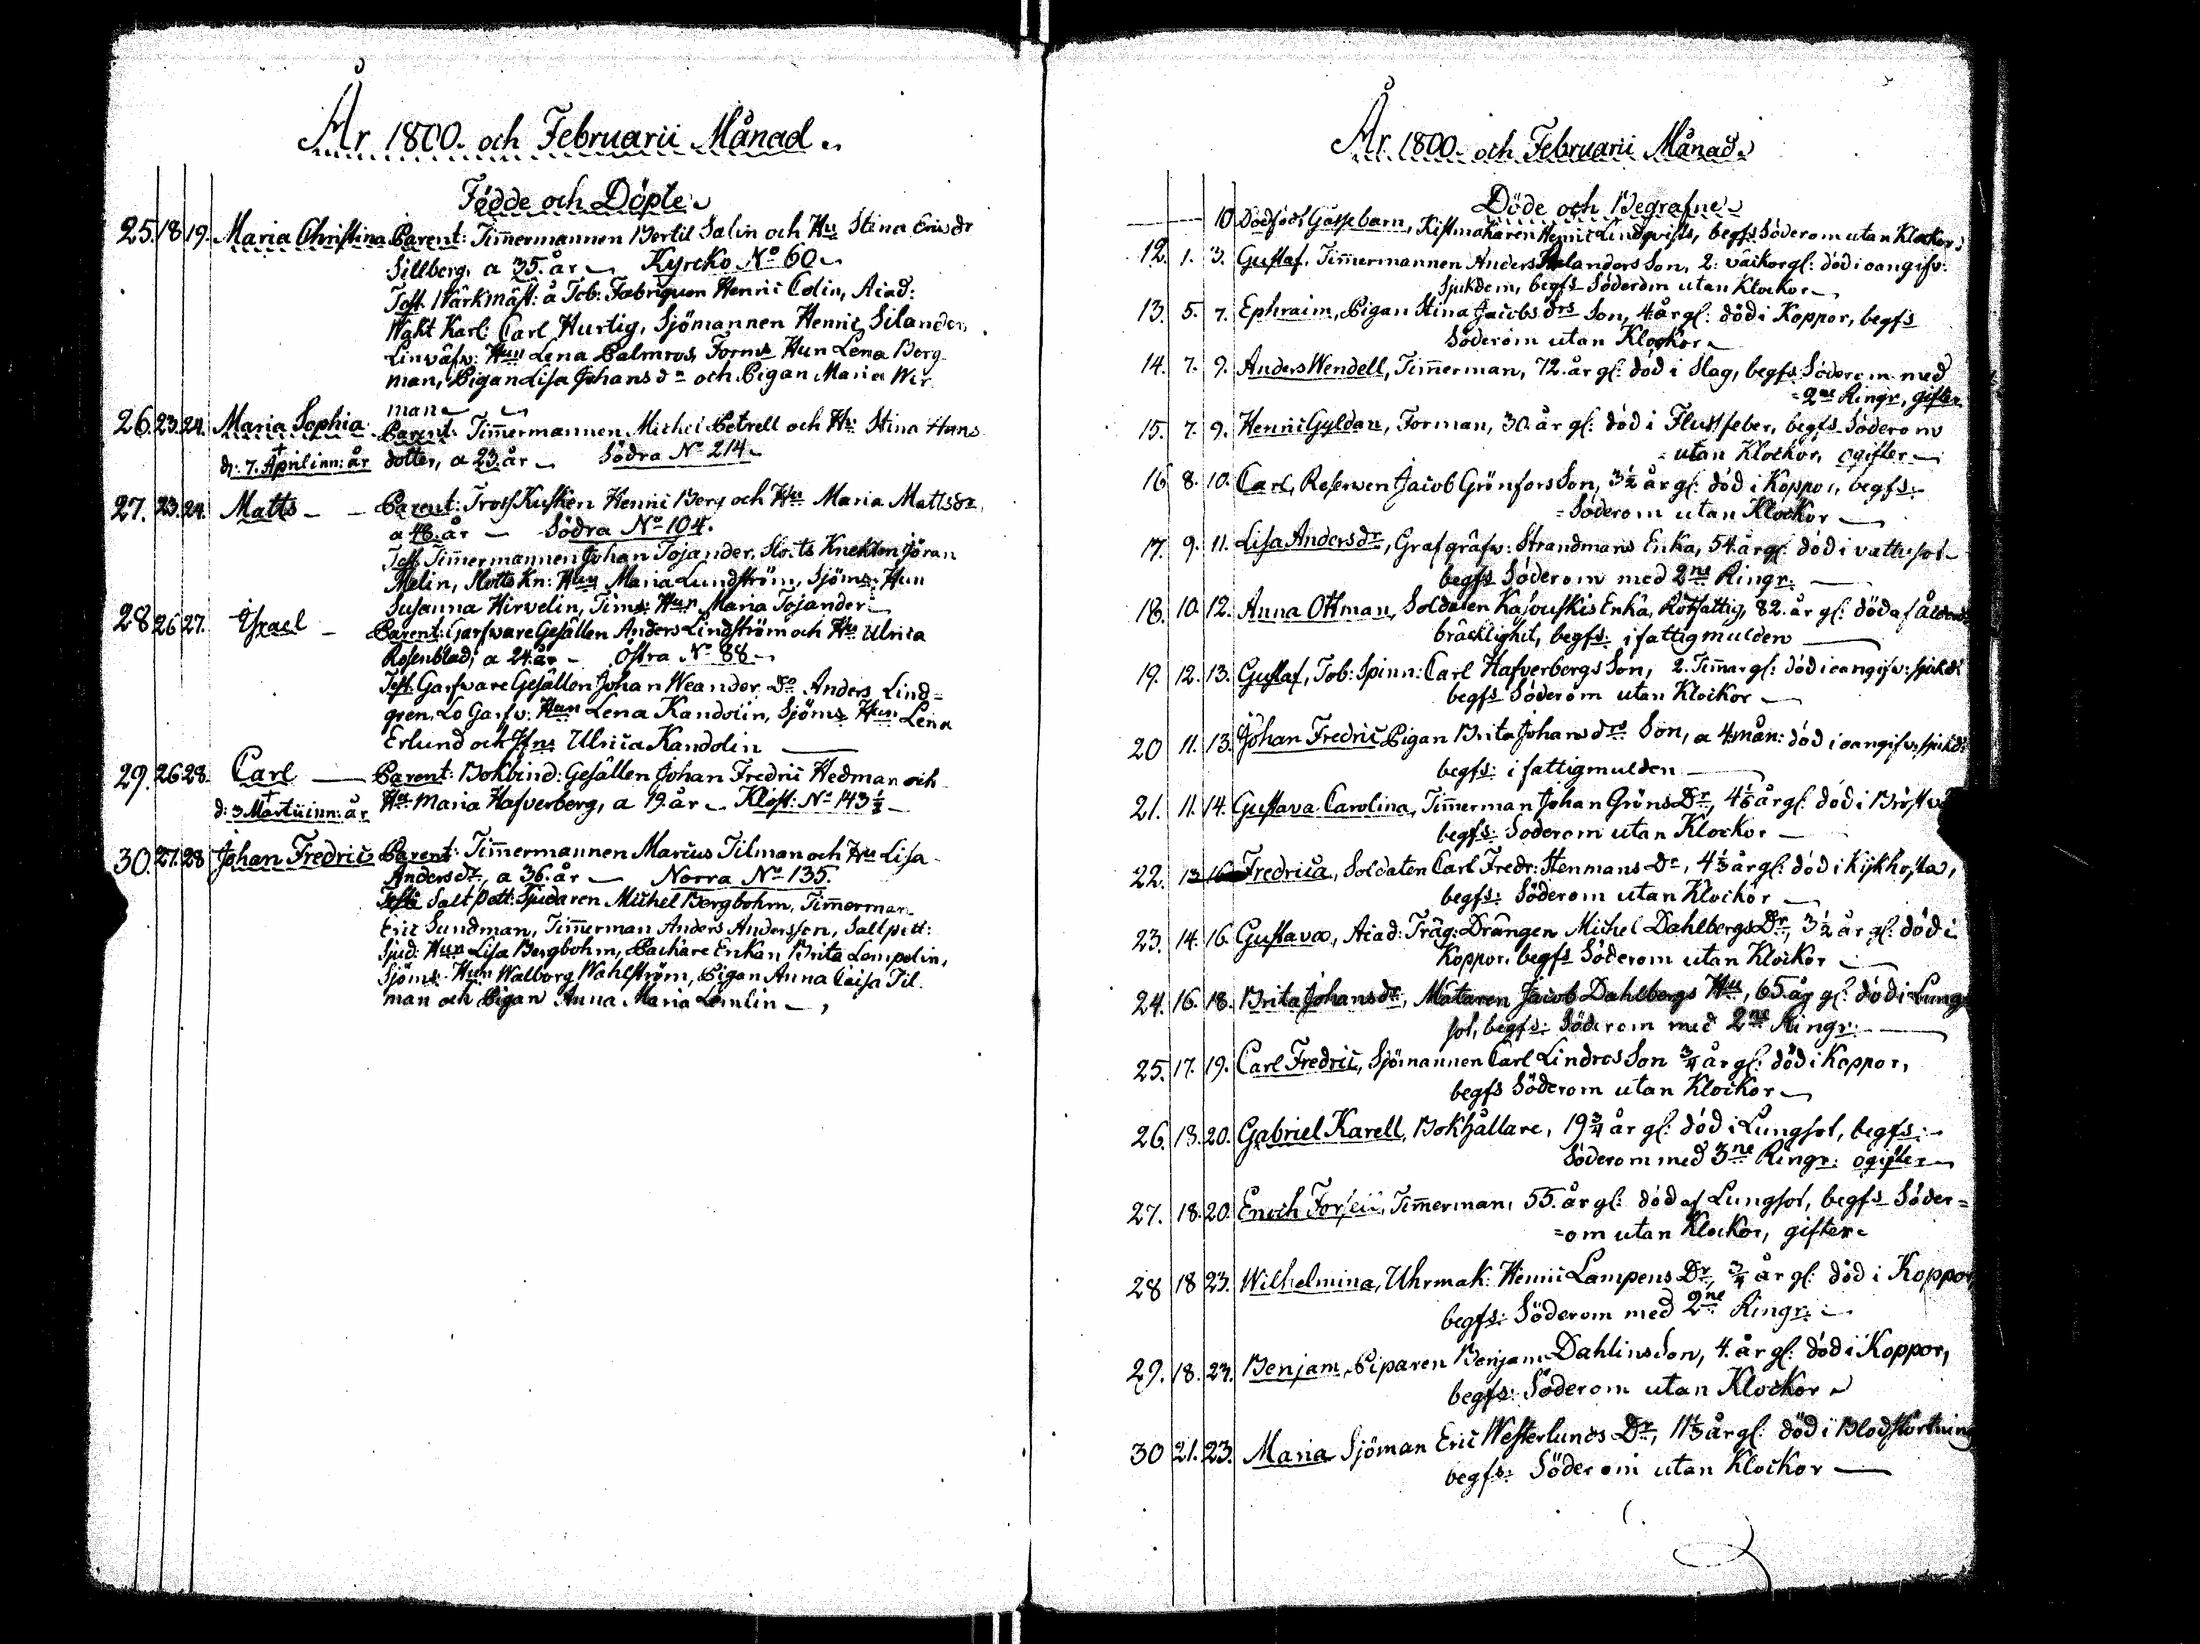 År 1800. och Februarii Månad.
Födde och Döpte
25. 18 19. Maria Christina Parent: Timmermannen Bertil Salin och Hu Stina Ericsdr
Sillberg, a 35. år Kyrcko No 60
Test. Wärkmäst: å Tob: Fabriquen Henric Colin, Acad:
Wakt Karl: Carl Hurtig, Sjömannen Henric Silander,
Linwäfv: Hun Lena Palmros, Forms Hun Lena Berg-
man, Pigan Lisa Johansdr och Pigan Maria Wir
man
26. 23. 24. Maria Sophia Parent: Timmermannen Michel Petrell och Hu Stina Hans
d: 7. April inn: år dotter, a 23. år Södra No 214
27. 23. 24. Matts Parent: Tross Kusken Henric Berg och Hu Maria Mattsdr,
a 48. år Södra No 104.
Test. Timmermannen Johan Tojander, Slotts Knekten Jöran
Melin, Slotts Kn: Hun Maria Lundström, Sjöms: Hun
Susanna Hirvelin, Tims: Hun Maria Tojander
28 26 27. Israel Parent: Garfware Gesällen Anders Lindström och Hu Ulrica
Rosenblad, a 24. år Östra No 88
Test. Garfware Gesällen Johan Weander, Do Anders Lind=
gren, Lo Garfv: Hun Lena Kandolin, Sjöms Hun Lena
Erlund och Ulrica Kandolin
29. 26. 28. Carl Parent: Bokbind: Gesällen Johan Fredric Hedman och
d: 3 Martii inn: år Hu Maria Hafverberg, a 19. år Klost: No 143 1/2
30. 27. 28 Johan Fredric Parent: Timmermannen Marcus Tilman och Hu Lisa
Andersdr, a 36. år Norra No 135.
Test: Saltpett: Sjudaren Michel Bergbohm, Timmerman
Eric Sundman, Timmerman Anders Andersson, Saltpett:
Sjud: Hun Lisa Bergbohm, Packare Enkan Brita Lampelin,
Sjöms Hun Walborg Wahlström, Pigan Anna Caisa Til-
man och Pigan Anna Maria Lemlin
År 1800. och Februarii Månad
Döde och Begrafne
10. Dödföd Gossebarn, Kistmakaren Henric Lindqvists, begfs Söderom utan Klockor
12. 1. 3. Gustaf, Timmermannen Anders Son, 2: vaikor gl: död i oangifv:
Sjukdom, begfs Söderom utan Klockor
13. 5. 7. Ephraim, Pigan Stina Jacobsdrs Son, 4 år gl: död i Koppor, begfs
Söderom utan Klockor
14. 7. 9. Anders Wendell, Timmerman, 72. år gl: död i Slag, begfs Söderom med
=2ne Ringr, gifter
15. 7. 9. Henric Gyldan, Forman, 30. år gl: död i Flussfeber, begfs Söderom
=utan Klockor, ogifter
16 8. 10. Carl, Reserven Jacob Grönfors Son, 3 1/2 år gl: död i Koppor, begfs:
=Söderom utan Klockor
17. 9. 11. Lisa Andersdr, Grafgräfv: Strandmans Enka, 54. år gl: död i vattusot
begfs Söderom med 2ne Ringr.
18. 10. 12. Anna Ottman, Soldaten Kajouskis Enka, Rotfattig, 82. år gl: död af Ålderdoms
bräcklighet, begfs: i fattigmulden
19. 12. 13. Gustaf, Tob: Spinn: Carl Hafverbergs Son, 2. Timmar gl: död i oangifv: sjukd:
begfs Söderom utan Klockor
20 11. 13. Johan Fredric Pigan Brita Johansdrs Son, a 4. mån: död i oangifv: sjukd:
begfs: i fattigmulden
21. 11. 14. Gustava Carolina, Timmerman Johan Gröns Dr, 4 1/6 år gl: död i Bröst
begfs: Söderom utan Klockor
22. 13 16. Fredrica, Soldaten Carl Fredr: Stenmans Dr, 4 1/3 år gl: död i Kikhosta,
begfs: Söderom utan Klockor
23. 14. 16. Gustava, Acad: Träg: Drängen Michel Dahlbergs Dr, 3 1/2 år gl: död i
Koppor, begfs Söderom utan Klockor
24. 16. 18. Brita Johansdr, Mätaren Jacob Dahlbergs Hu, 65. år gl: död i Lung
sot, begfs: Söderom med 2ne Ringr:
25. 17. 19. Carl Fredric, Sjömannen Carl Lindros Son 3/4 år gl: död i Koppor,
begfs Söderom utan Klockor
26. 18. 20. Gabriel Karell, Bokhållare, 19 3/4 år gl: död i Lungsot, begfs:
Söderom med 3ne Ringr: ogifter
27. 18. 20. Enoch Timmerman, 55. år gl: död af Lungsot, begfs Söder=
=om utan Klockor, gifter
28 18 23. Wilhelmina, Uhrmak: Henric Lampens Dr, 3/4 år gl: död i Koppor,
begfs: Söderom med 2ne Ringr:
29. 18. 23. Benjam, Piparen Benjam Dahlins Son, 4. år gl: död i Koppor,
begfs: Söderom utan Klockor
30 21. 23. Maria Sjöman Eric Westerlunds Dr, 11 1/3 år gl: död i Blodstörtning
begfs: Söderom utan Klockor